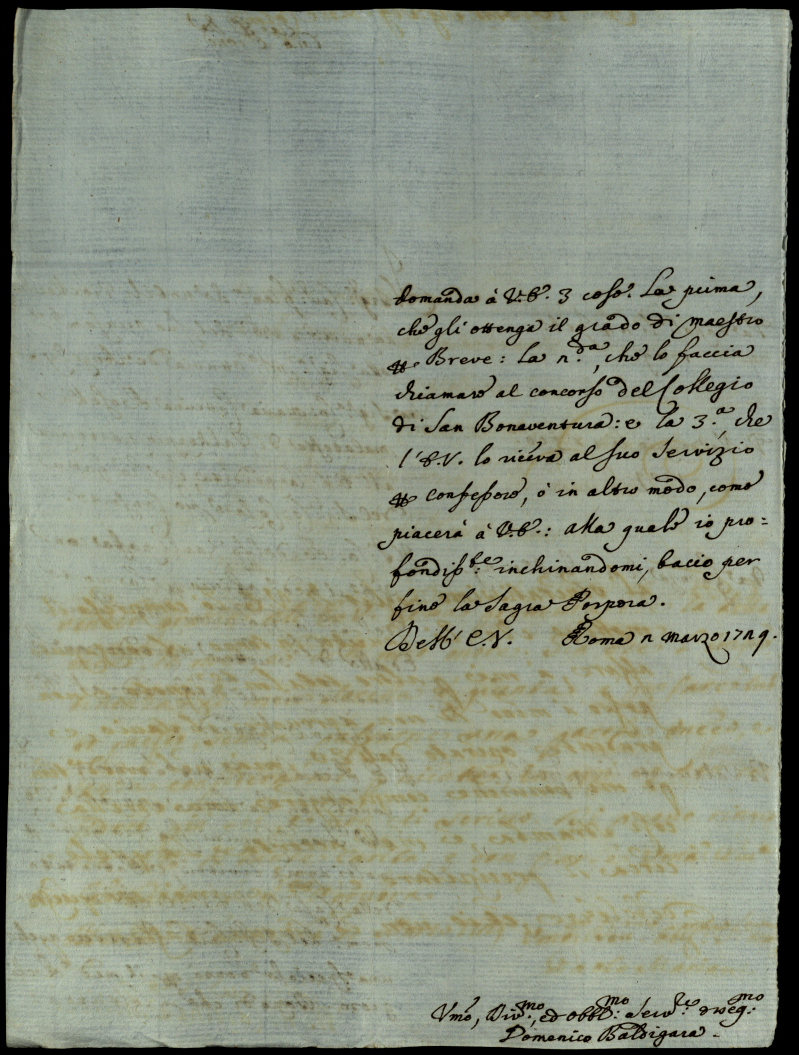 domanda à V.E. 3 cose. La prima,
che gli ottenga il grado di maestro
Breve: la n.da, che lo faccia
chiamare al concorso del Collegio
di San Bonaventura: e la 3.a, che
l'E.V. lo riceva al suo servizio
confessore, ò in altro modo, come
piacerà à V.E.: alla quale io pro=
fondiss.te inchinandomi, bacio per
fine la Sagra Porpora.
Dell' E.V. Roma n marzo 17n9.
Vmo, Div.mo, ed obbl.mo Serv.re osseq.mo
Domenico Baldigara.